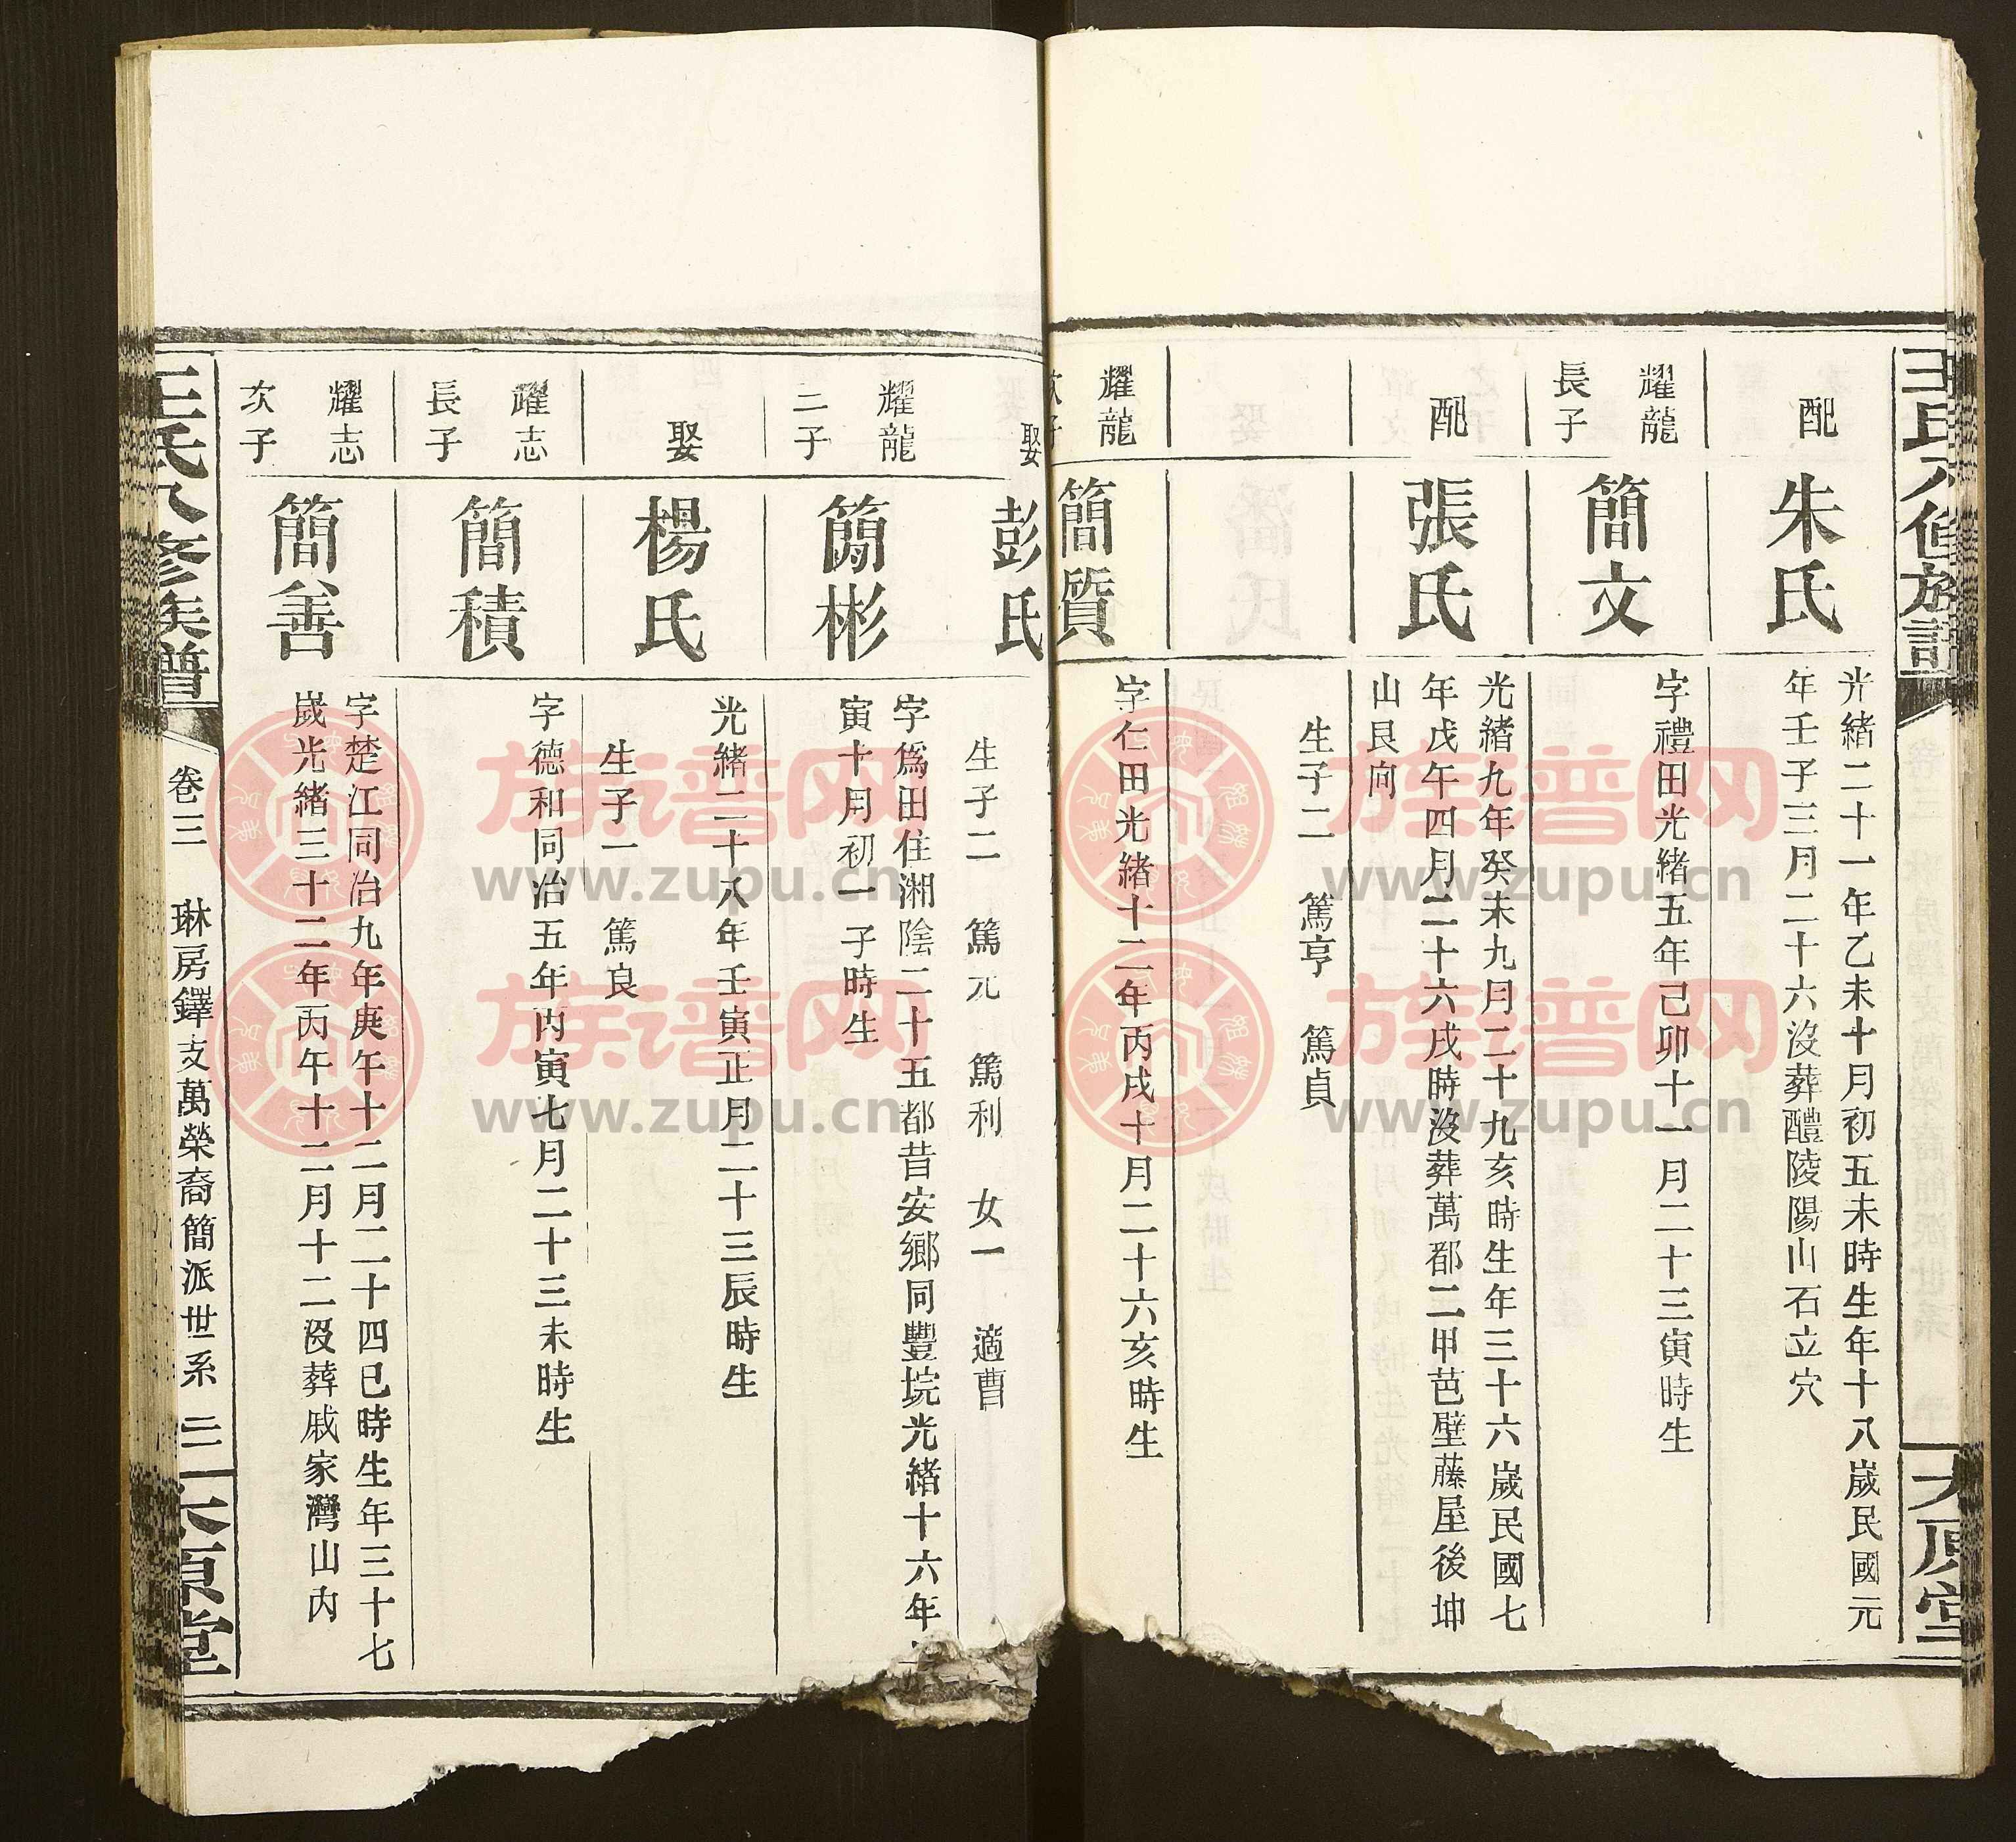 王氏八修族譜
太原堂
配
朱氏
光緒二十一年乙未十月初五未時生年十八歲民國元
年壬子三月二十六沒葬醴陵陽山石立穴
耀龍
長子
簡文
字禮田光緒五年己卯十一月二十三寅時生
配
張氏
光緒九年癸未九月二十九亥時生年三十六歲民國七
年戊午四月二十六戌時沒葬萬都二甲芭壁藤屋後坤
山艮向
生子二 篤亨 篤貞
耀龍
次子
簡質
字仁田光緒十二年丙戌十月二十六亥時生
娶
彭氏
生子二 篤元 篤利 女一 適曹
耀龍
三子
簡彬
字為田住湘陰二十五都昔安鄉同豐垸光緒十六年
寅十月初一子時生
娶
楊氏
光緒二十八年壬寅正月二十三辰時生
生子一 篤良
躍志
長子
簡積
字德和同治五年丙寅七月二十三未時生
耀志
次子
簡善
字楚江同治九年庚午十二月二十四巳時生年三十七
歲光緒三十二年丙午十二月十二沒葬戚家灣山內
王氏八修族譜
卷三 琳房鐸支萬榮裔簡派世系 二
太原堂
族谱网
www.zupu.cn
族谱网
www.zupu.cn
族谱网
www.zupu.cn
族谱网
www.zupu.cn